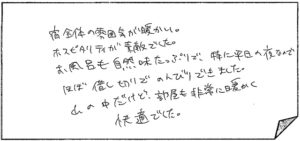 宿全体の雰囲気が暖かい。
ホスピタリティが素敵でした。
お風呂も自然味たっぷりで、特に平日の夜なんで
ほぼ貸し切りでのんびりできました。
山の中だけど、部屋も非常に暖かく
快適でした。